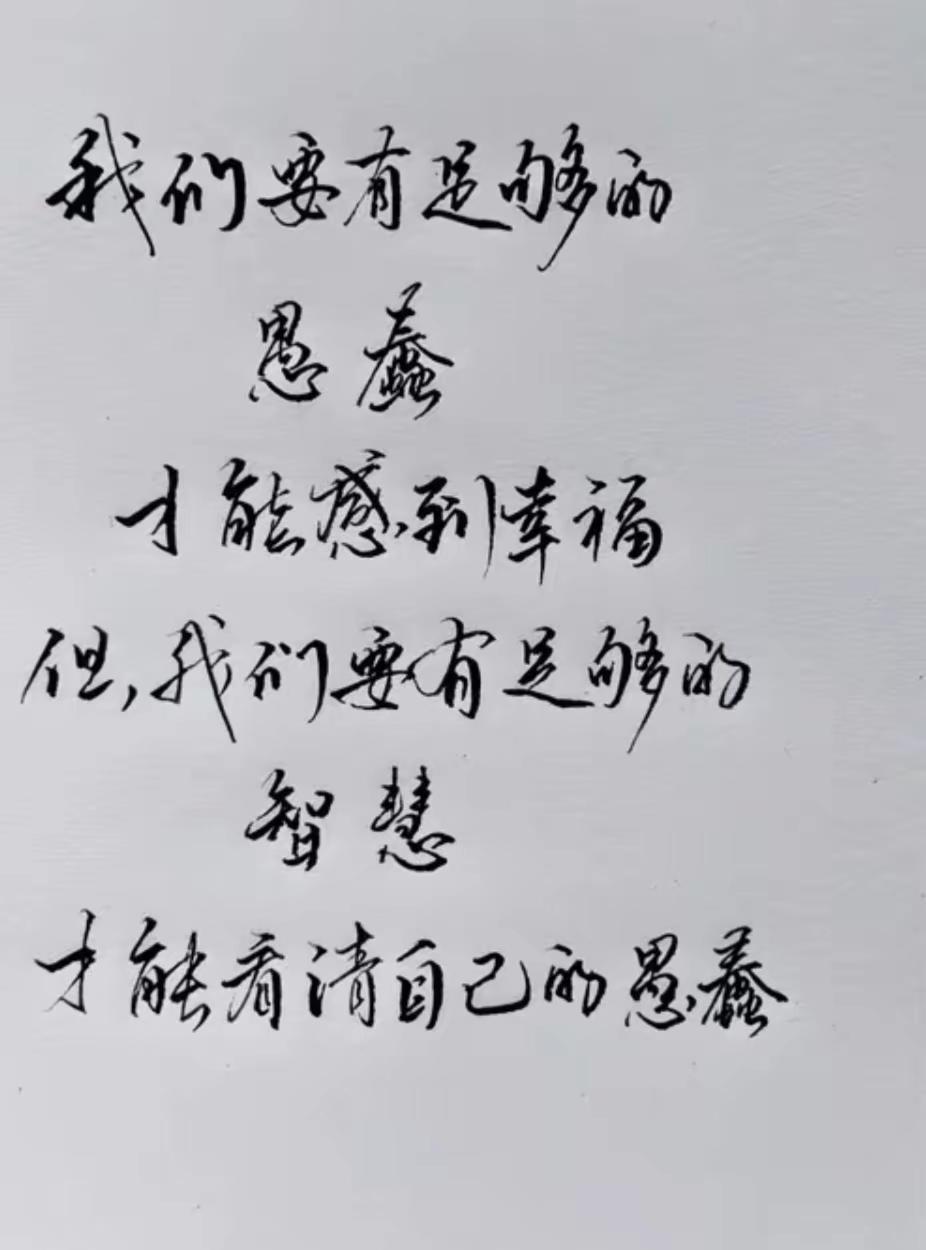 我们要有足够的
愚蠢
才能感到幸福
但,我们要有足够的
智慧
才能看清自己的愚蠢